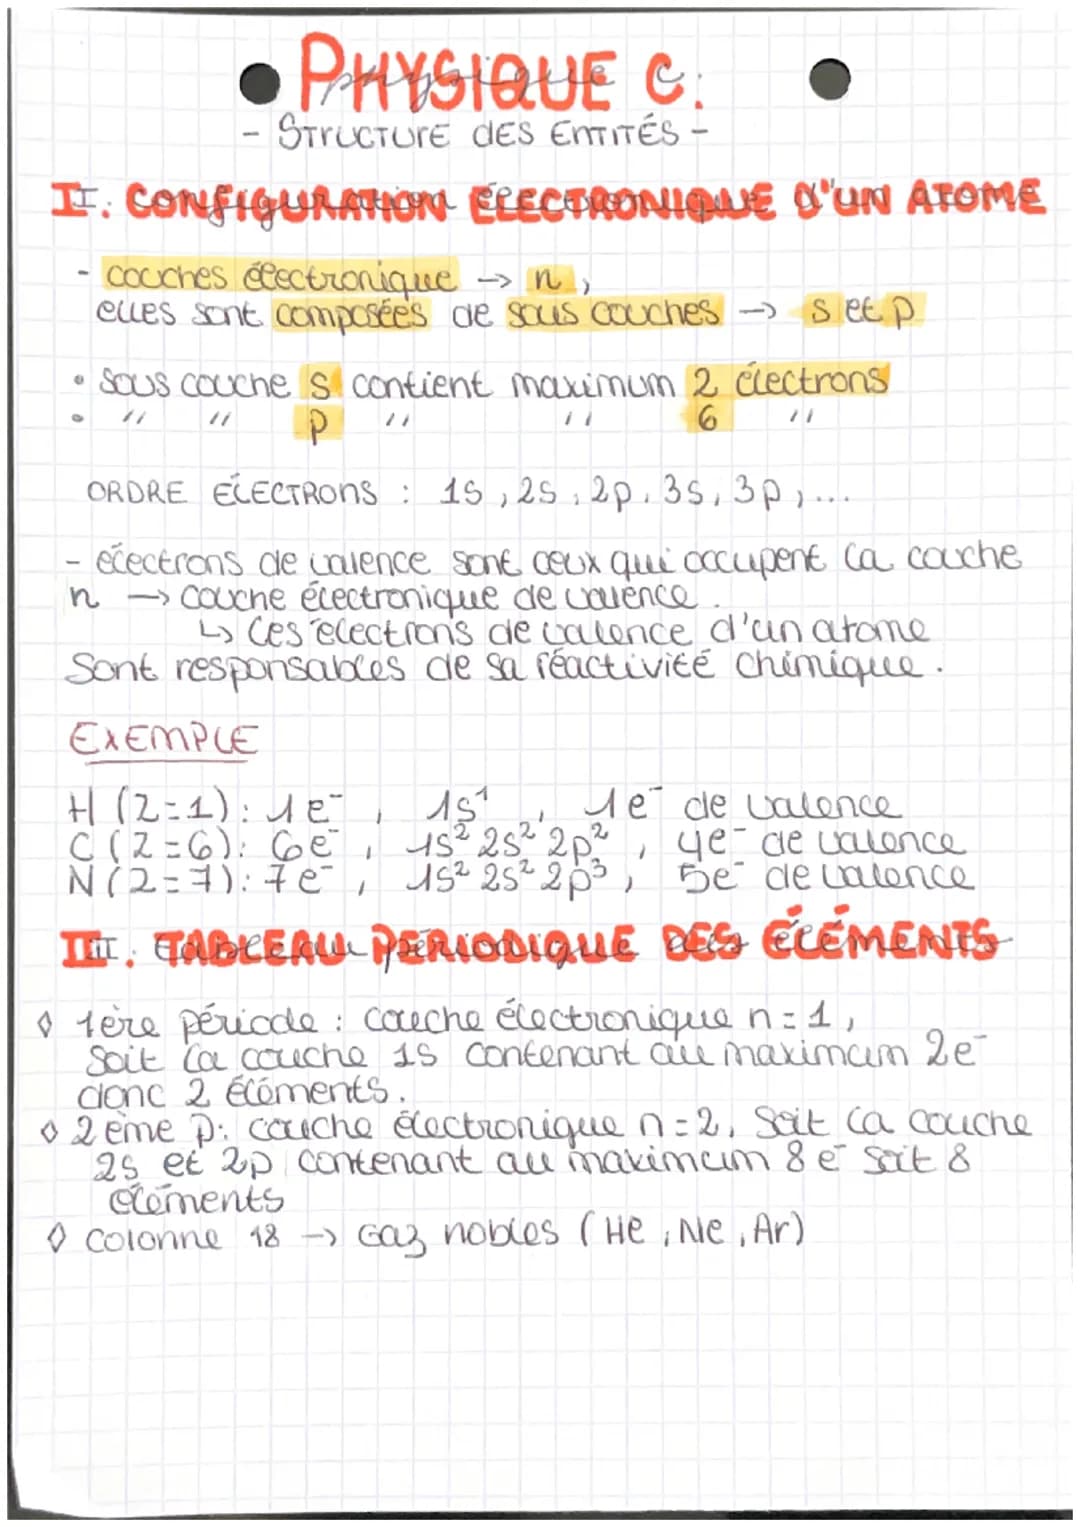 PHYSIQUE C.
- STRUCTURE dES ENTITÉS -
II. CONFIGURATION ÉLECTRONIQUE d'UN ATOME
- couches électronique → n,
elles sont composées de sous couches → s et p
• sous couche s contient maximum 2 électrons
• " " p " " 6 "
ORDRE ÉLECTRONS : 1s, 2s, 2p, 3s, 3p, ...
- électrons de valence sont ceux qui occupent la couche
n → couche électronique de valence.
↳ Ces électrons de valence d'un atome
Sont responsables de sa réactivité chimique.
EXEMPLE
H (Z=1): 1e⁻, 1s¹, 1e⁻ de valence
C (Z=6): 6e⁻, 1s² 2s² 2p², 4e⁻ de valence
N (Z=7): 7e⁻, 1s² 2s² 2p³, 5e⁻ de valence
III. TABLEAU PÉRIODIQUE DES ÉLÉMENTS
◊ 1ère période : couche électronique n=1,
Soit la couche 1s contenant au maximum 2e⁻
donc 2 éléments.
◊ 2ème p: couche électronique n=2, Soit la couche
2s et 2p contenant au maximum 8e⁻ soit 8
éléments
◊ Colonne 18 → Gaz nobles (He, Ne, Ar)